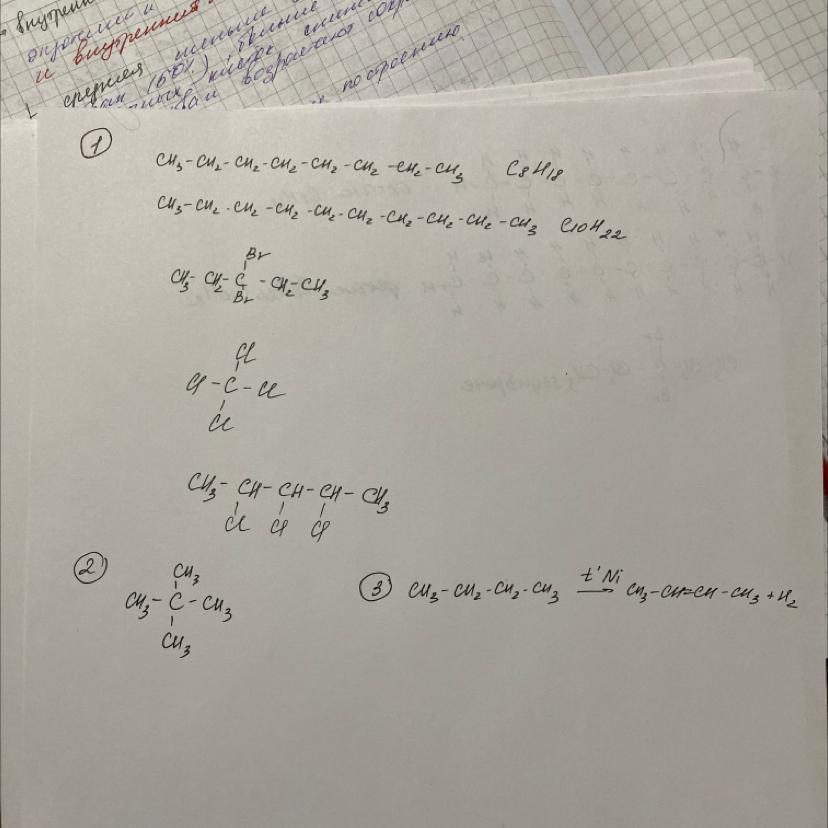 внутренн
и внутренния
средняя меньше
возрастают
по построению.
1
CH3-CH2-CH2-CH2-CH2-CH2-CH2-CH3 C8H18
CH3-CH2-CH2-CH2-CH2-CH2-CH2-CH2-CH2-CH3 C10H22
Br
CH3-CH2-C-CH2-CH3
Br
Cl
Cl-C-Cl
Cl
CH3-CH-CH-CH-CH3
Cl Cl Cl
2
CH3
CH3-C-CH3
CH3
3 CH3-CH2-CH2-CH3 t' Ni → CH3-CH=CH-CH3+H2